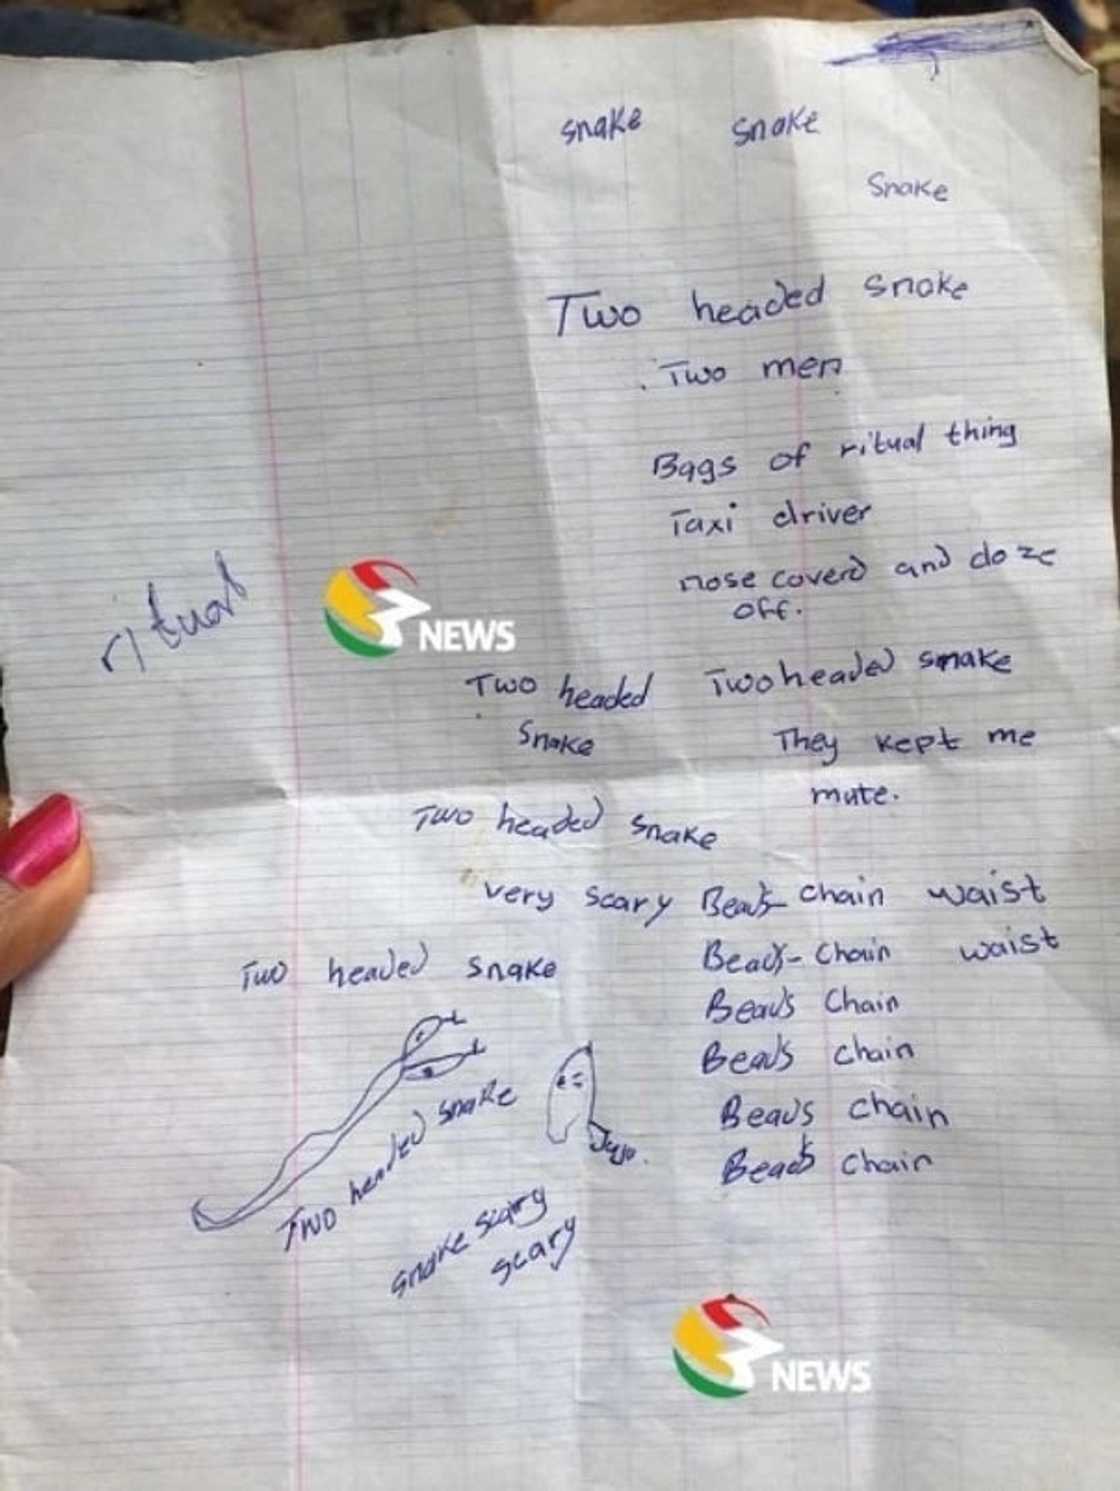 snake snake
Snake
Two headed snake
Two men
Bags of ritual thing
Taxi driver
nose coverd and doze
off.
ritual
NEWS
Two headed Two headed snake
Snake They kept me
mute.
Two headed snake
very scary Beads- chain waist
Beads- chain waist
Two headed snake
Beads Chain
Beads chain
Beads chain
Beads chain
Two headed snake
Juju.
snake scary
scary
3 NEWS